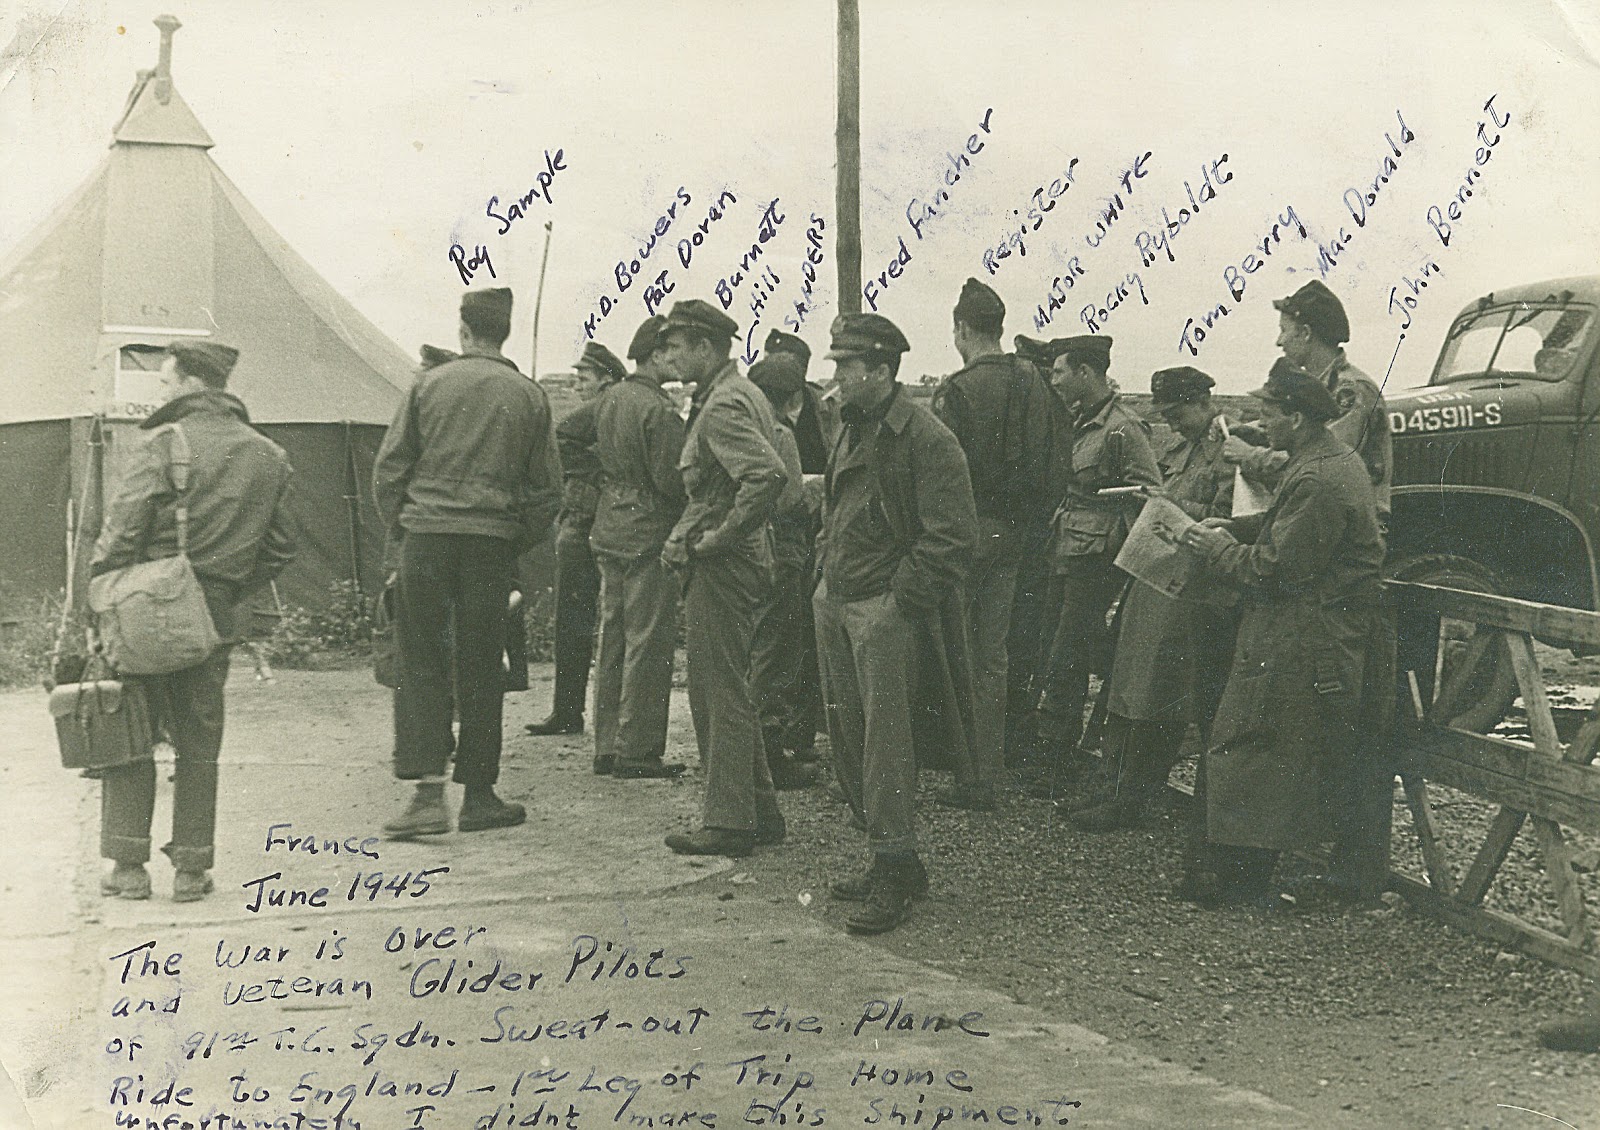 Roy Sample
H.D. Bowers
Pat Doran
Burnett
Hill
SANDERS
Fred Fancher
Register
MAJOR WHITE
Rocky Ryboldt
Tom Berry
Mac Donald
John Bennett
U.S.
OPEN
USA
045911-S
France
June 1945
The War is over
and veteran Glider Pilots
of 91st T.C. Sqdn. Sweat-out the Plane
Ride to England - 1st Leg of Trip Home
Unfortunately I didnt make this Shipment